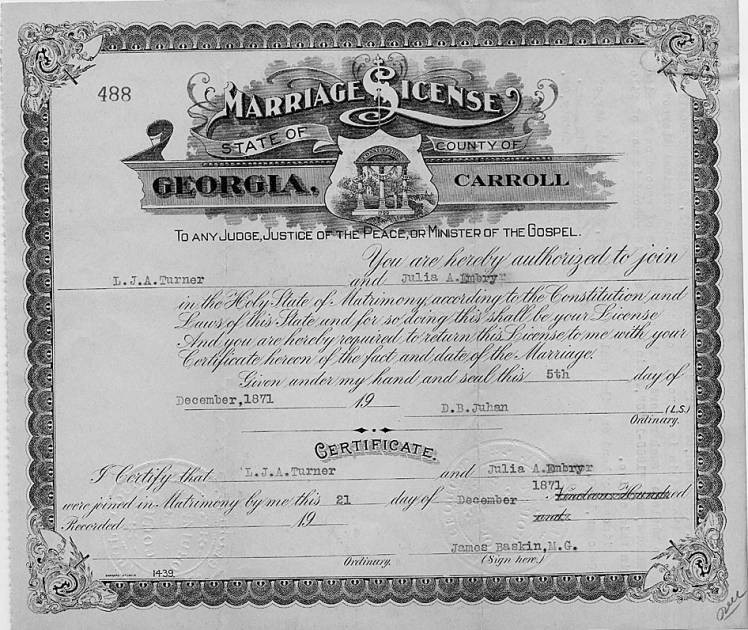 488
MARRIAGE LICENSE
STATE OF COUNTY OF
GEORGIA, CARROLL
TO ANY JUDGE, JUSTICE OF THE PEACE, OR MINISTER OF THE GOSPEL.
You are hereby authorized to join
L.J.A.Turner and Julia A.Embryr
in the Holy State of Matrimony, according to the Constitution and
Laws of this State and for so doing this shall be your License
And you are hereby required to return this License to me with your
Certificate hereon of the fact and date of the Marriage.
Given under my hand and seal this 5th day of
December,1871 19 D.B.Juhan (L.S.)
Ordinary.
CERTIFICATE.
I Certify that L.J.A.Turner and Julia A.Embryr
1871
were joined in Matrimony by me this 21 day of December Nineteen Hundred
Recorded 19 and
James Baskin,M.G.
Ordinary. (Sign here.)
1439